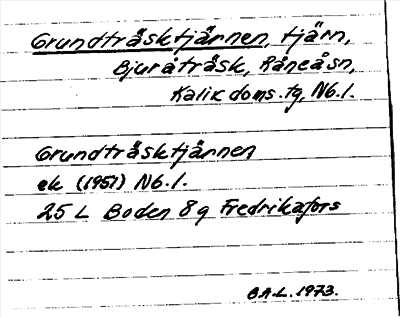 Grundträsktjärnen, tjärn,
Bjuråträsk, Råneåsn,
Kalix doms. tg, Nb.l.
Grundträsktjärnen
ek (1951) Nb.l.
25 L Boden 8 g Fredrikafors
B.A-L. 1973.